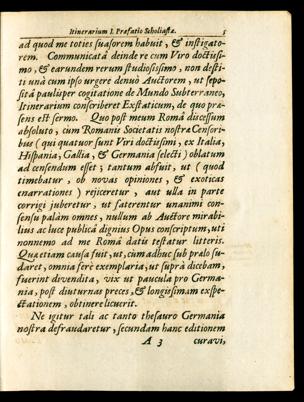 Itinerarium I. Præfatio Scholiastæ. 5
ad quod me toties suasorem habuit, & instigato-
rem. Communicatâ deinde re cum Viro doctissi-
mo, & earundem rerum studiosissimo, non desti-
ti unâ cum ipso urgere denuò Auctorem, ut sepo-
sitâ paulisper cogitatione de Mundo Subterraneo,
Itinerarium conscriberet Exstaticum, de quo præ-
sens est sermo. Quo post meum Româ discessum
absoluto, cum Romanis Societatis nostræ Censori-
bus (qui quatuor sunt Viri doctissimi, ex Italia,
Hispania, Gallia, & Germania selecti) oblatum
ad censendum esset; tantum abfuit, ut (quod
timebatur, ob novas opiniones, & exoticas
enarrationes) rejiceretur, aut ulla in parte
corrigi juberetur, ut faterentur unanimi con-
sensu palàm omnes, nullum ab Auctore mirabi-
lius ac luce publicâ dignius Opus conscriptum, uti
nonnemo ad me Româ datis testatur litteris.
Quæ etiam causa fuit, ut, cum adhuc sub prælo su-
daret, omnia ferè exemplaria, ut suprà dicebam,
fuerint divendita, vix ut paucula pro Germa-
nia, post diuturnas preces, & longissimam exspe-
ctationem, obtinere licuerit.
Ne igitur tali ac tanto thesauro Germania
nostra defraudaretur, secundam hanc editionem
A 3 curavi,